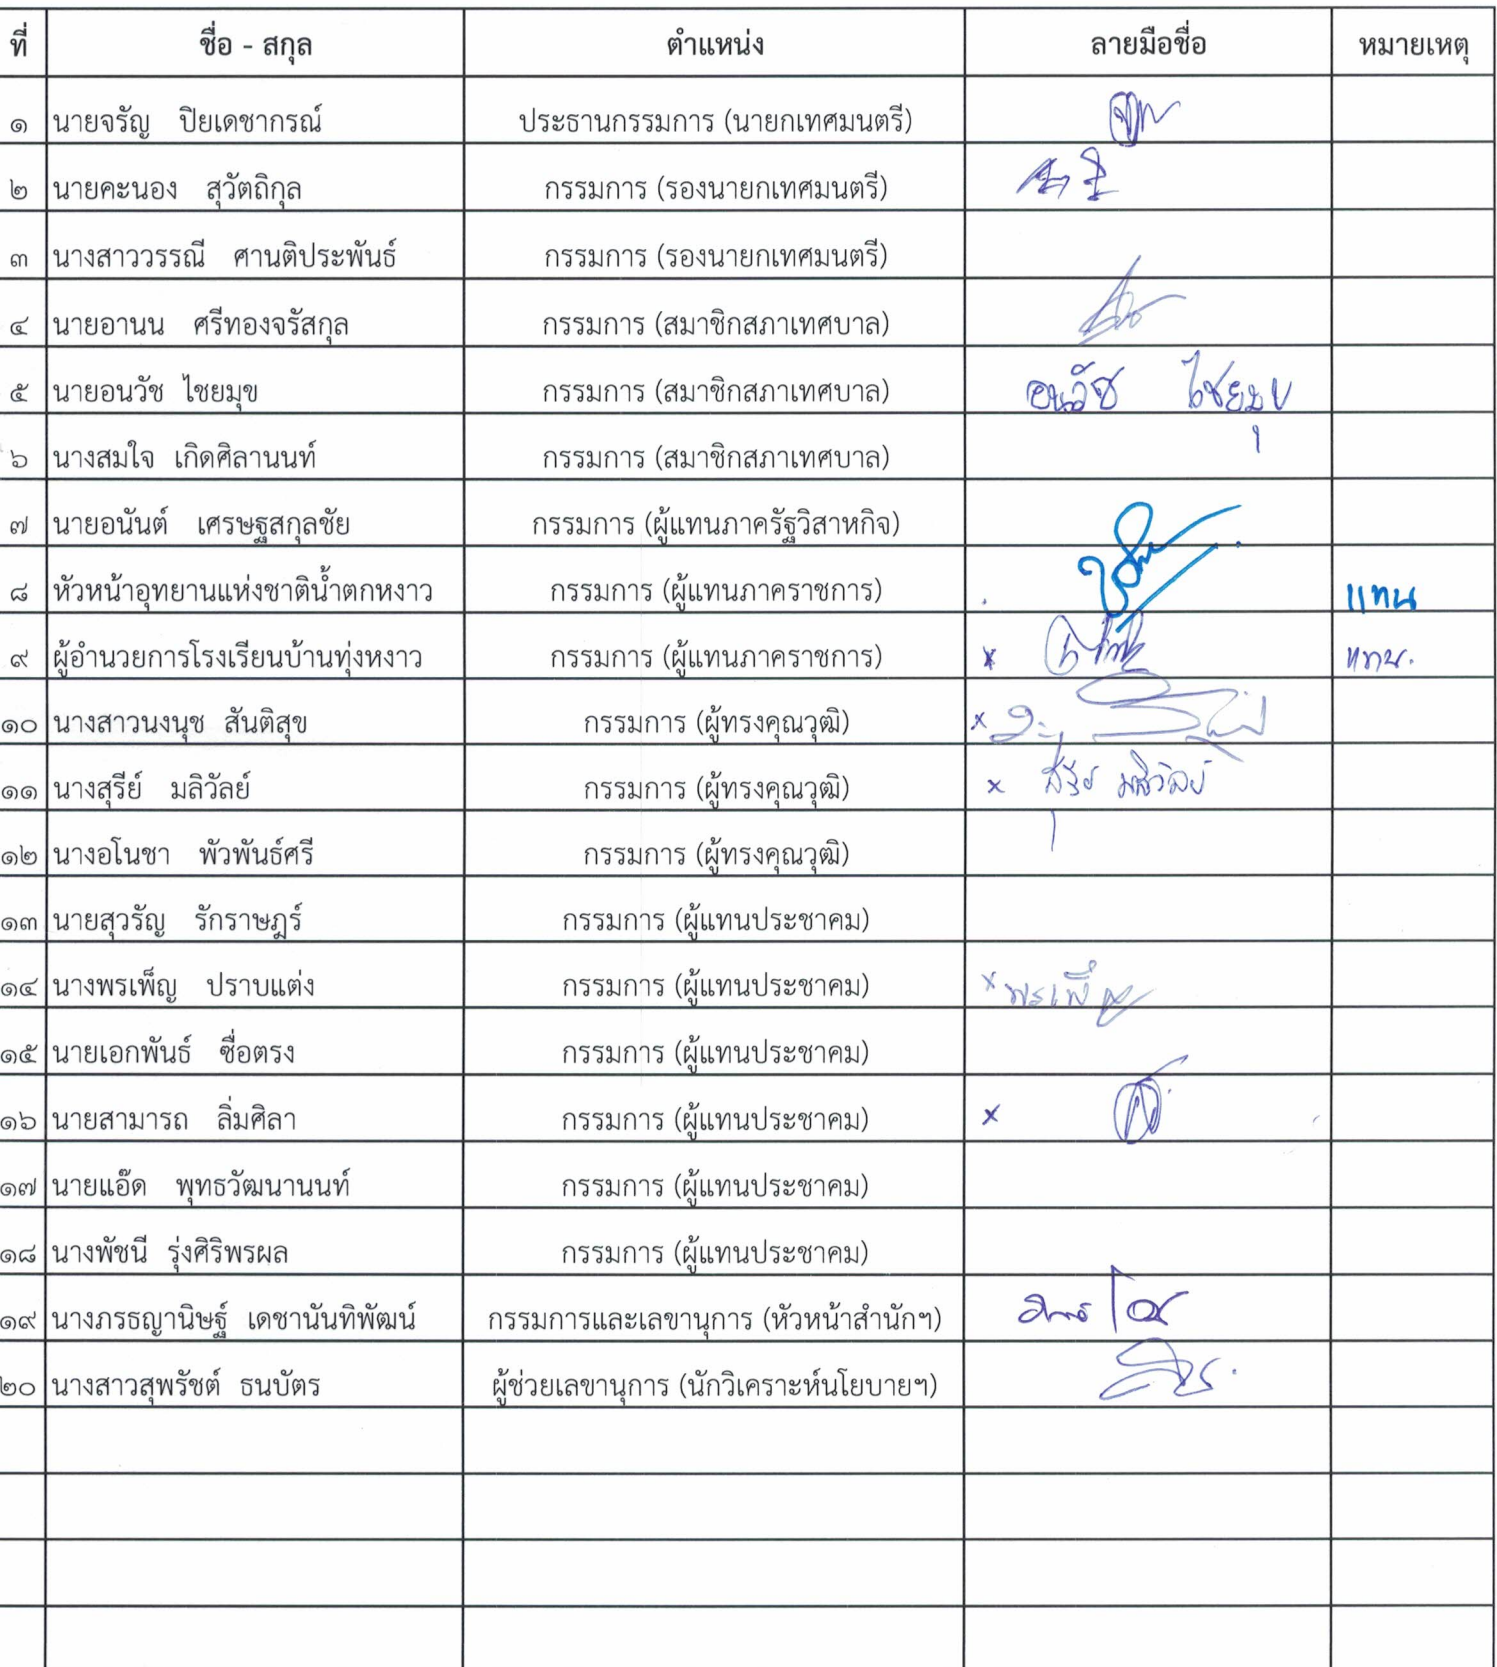 ที่ ชื่อ - สกุล ตำแหน่ง ลายมือชื่อ หมายเหตุ
๑ นายจรัญ ปิยเดชากรณ์ ประธานกรรมการ (นายกเทศมนตรี)
๒ นายคะนอง สุวัตถิกุล กรรมการ (รองนายกเทศมนตรี)
๓ นางสาววรรณี ศานติประพันธ์ กรรมการ (รองนายกเทศมนตรี)
๔ นายอานน ศรีทองจรัสกุล กรรมการ (สมาชิกสภาเทศบาล)
๕ นายอนวัช ไชยมุข กรรมการ (สมาชิกสภาเทศบาล) อนวัช ไชยมุข
๖ นางสมใจ เกิดศิลานนท์ กรรมการ (สมาชิกสภาเทศบาล)
๗ นายอนันต์ เศรษฐสกุลชัย กรรมการ (ผู้แทนภาครัฐวิสาหกิจ)
๘ หัวหน้าอุทยานแห่งชาติน้ำตกหงาว กรรมการ (ผู้แทนภาคราชการ) แทน
๙ ผู้อำนวยการโรงเรียนบ้านทุ่งหงาว กรรมการ (ผู้แทนภาคราชการ) x แทน.
๑๐ นางสาวนงนุช สันติสุข กรรมการ (ผู้ทรงคุณวุฒิ) x
๑๑ นางสุรีย์ มลิวัลย์ กรรมการ (ผู้ทรงคุณวุฒิ) x สุรีย์ มลิวัลย์
๑๒ นางอโนชา พัวพันธ์ศรี กรรมการ (ผู้ทรงคุณวุฒิ)
๑๓ นายสุวรัญ รักราษฎร์ กรรมการ (ผู้แทนประชาคม)
๑๔ นางพรเพ็ญ ปราบแต่ง กรรมการ (ผู้แทนประชาคม) x พรเพ็ญ
๑๕ นายเอกพันธ์ ซื่อตรง กรรมการ (ผู้แทนประชาคม)
๑๖ นายสามารถ ลิ่มศิลา กรรมการ (ผู้แทนประชาคม) x
๑๗ นายแอ๊ด พุทธวัฒนานนท์ กรรมการ (ผู้แทนประชาคม)
๑๘ นางพัชนี รุ่งศิริพรผล กรรมการ (ผู้แทนประชาคม)
๑๙ นางภรธญานิษฐ์ เดชานันทิพัฒน์ กรรมการและเลขานุการ (หัวหน้าสำนักฯ)
๒๐ นางสาวสุพรัชต์ ธนบัตร ผู้ช่วยเลขานุการ (นักวิเคราะห์นโยบายฯ)